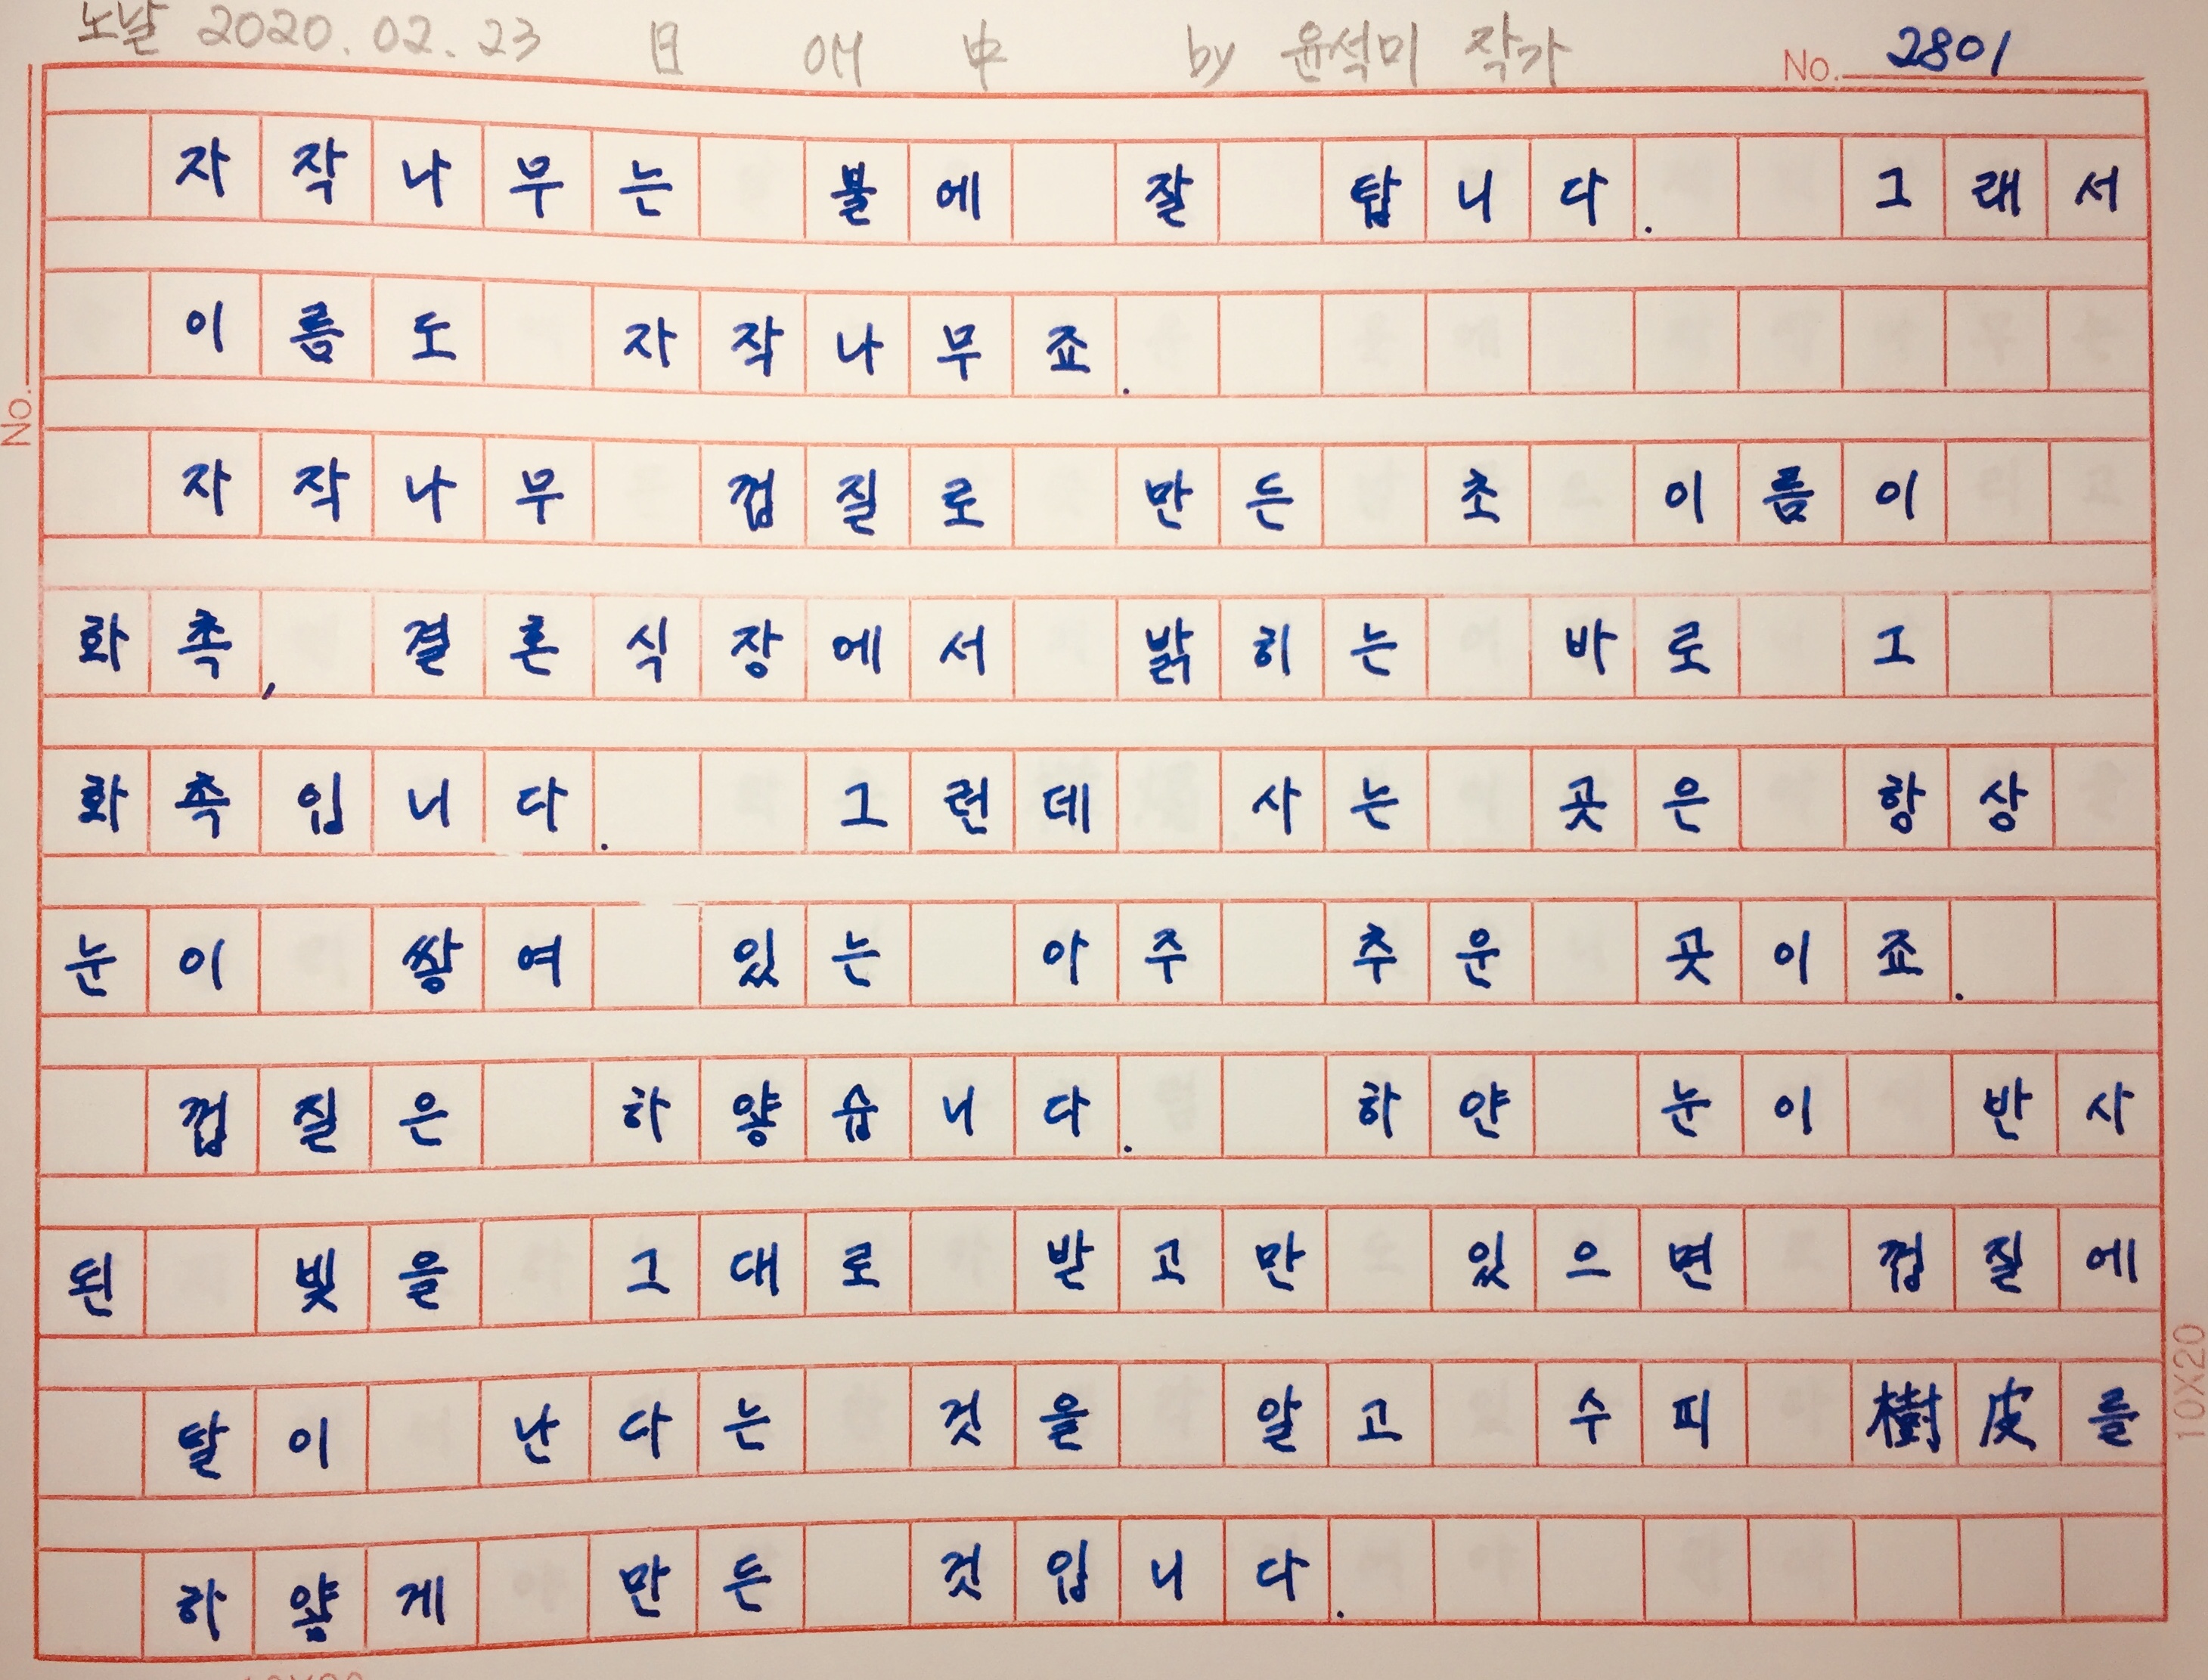 노날 2020.02.23 日 애 中 by 윤석미 작가 No. 2801
자작나무는 불에 잘 탑니다. 그래서
이름도 자작나무죠.
No.
자작나무 껍질로 만든 초 이름이
화촉, 결혼식장에서 밝히는 바로 그
화촉입니다. 그런데 사는 곳은 항상
눈이 쌓여 있는 아주 추운 곳이죠.
껍질은 하얗습니다. 하얀 눈이 반사
된 빛을 그대로 받고만 있으면 껍질에
탈이 난다는 것을 알고 수피 樹皮를
하얗게 만든 것입니다.
10X20